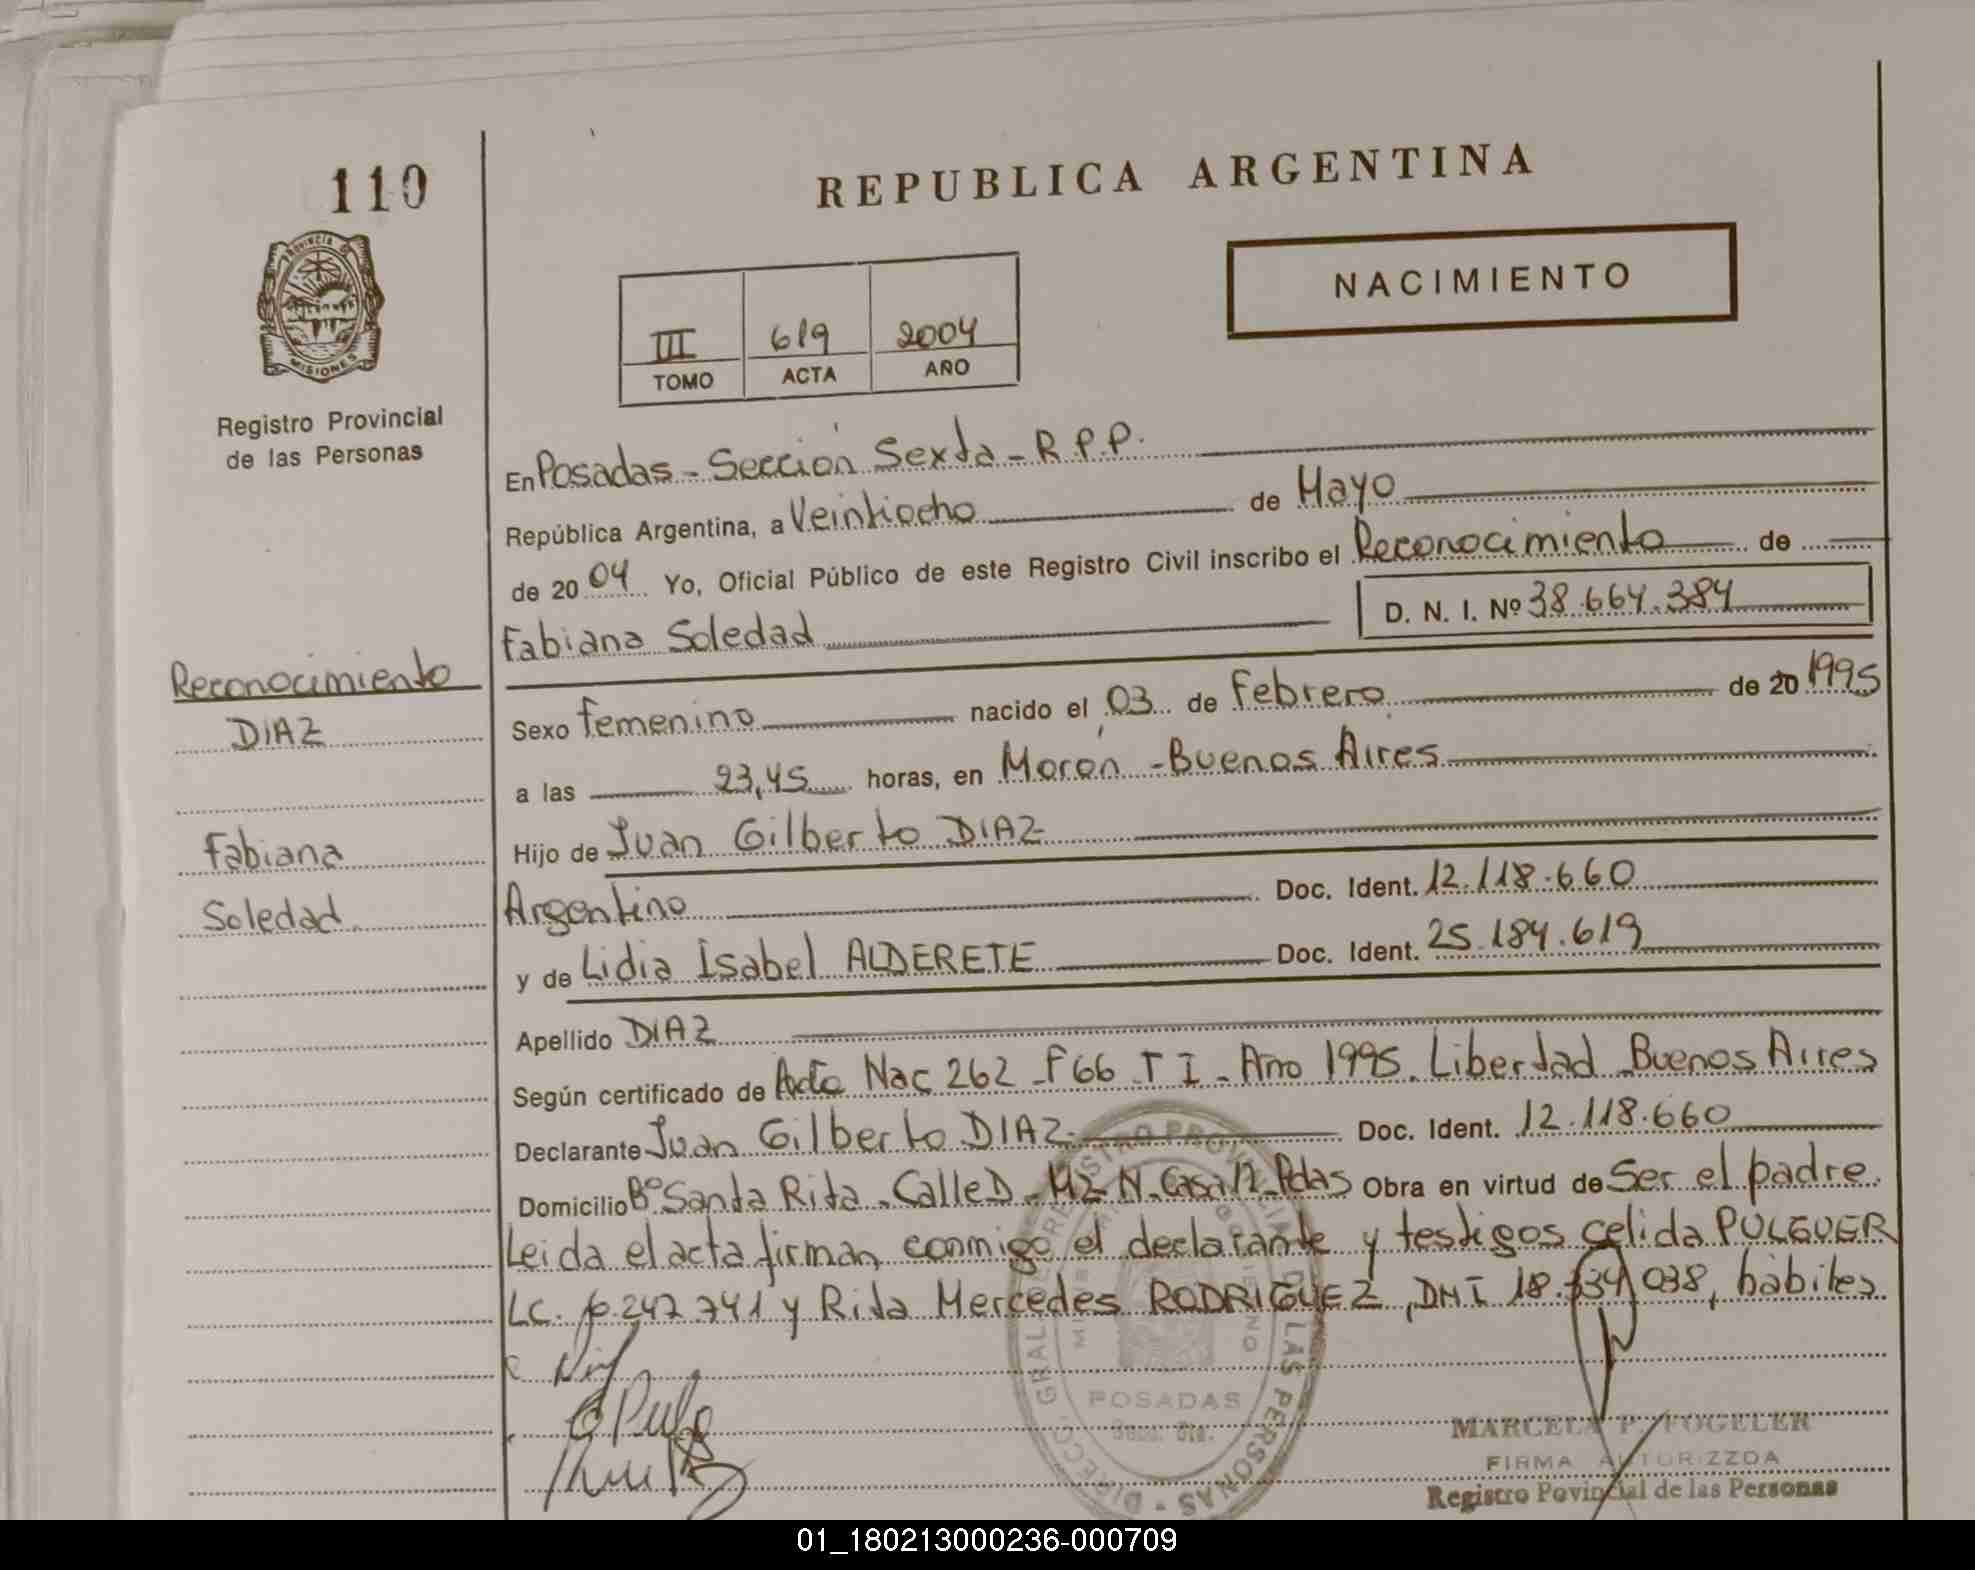 110
REPUBLICA ARGENTINA
NACIMIENTO
PROVINCIA DE
MISIONES
III 619 2004
TOMO ACTA AÑO
Registro Provincial
de las Personas
En Posadas - Sección Sexta - R.P.P.
República Argentina, a Veintiocho de Mayo
de 2004 Yo, Oficial Público de este Registro Civil inscribo el Reconocimiento de
D. N. I. Nº 38.664.384
Fabiana Soledad
Reconocimiento
DIAZ
Fabiana
Soledad
Sexo femenino nacido el 03 de Febrero de 20 1995
a las 23,45 horas, en Morón - Buenos Aires
Hijo de Juan Gilberto DIAZ
Argentino Doc. Ident. 12.118.660
y de Lidia Isabel ALDERETE Doc. Ident. 25.184.619
Apellido DIAZ
Según certificado de Acta Nac 262 - F 66 - T I - Año 1995. Libertad - Buenos Aires
Declarante Juan Gilberto DIAZ Doc. Ident. 12.118.660
Domicilio Bº Santa Rita - Calle D - Mz N - Casa 12 - Pdas Obra en virtud de Ser el padre.
Leida el acta firman conmigo el declarante y testigos Celida PULGUER
LC. 247.741 y Rita Mercedes RODRIGUEZ, DNI 038, hábiles.
POSADAS
MARCELA P. FOGELER
FIRMA AUTORIZZDA
Registro Povincial de las Personas
01_180213000236-000709